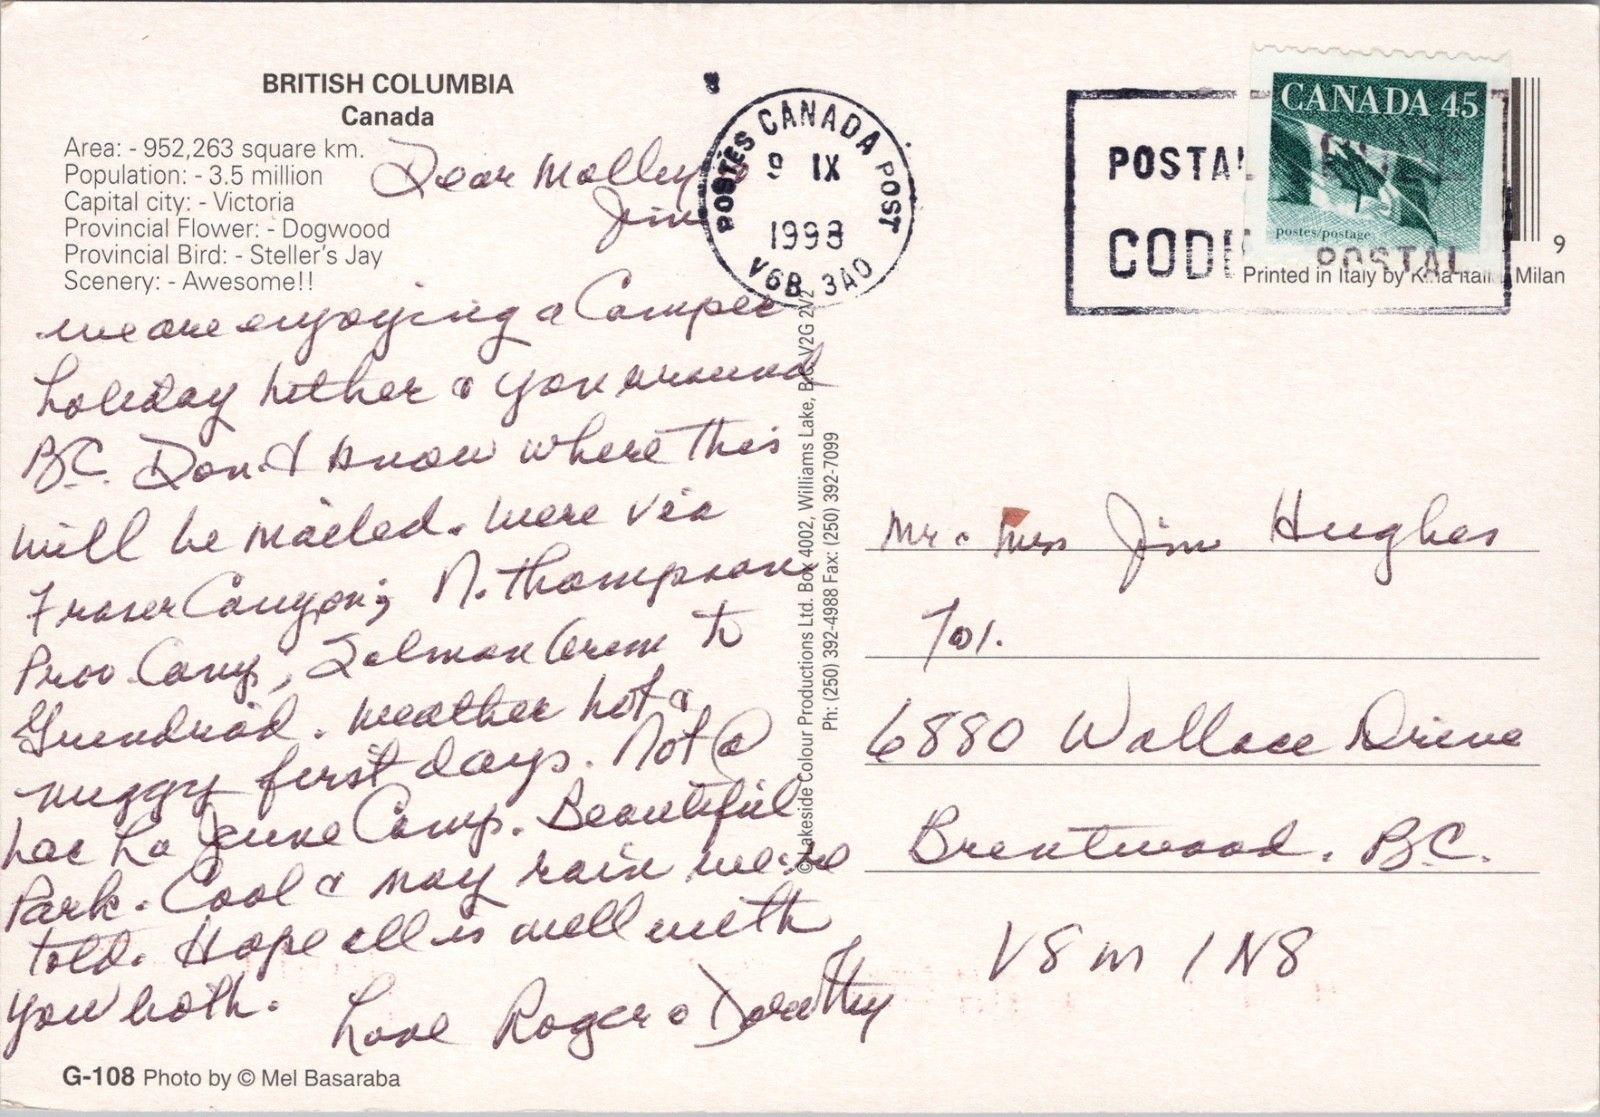 BRITISH COLUMBIA
Canada
Area: - 952,263 square km.
Population: - 3.5 million
Capital city: - Victoria
Provincial Flower: - Dogwood
Provincial Bird: - Steller's Jay
Scenery: - Awesome!!
Dear Molley &
Jim
we are enjoying a Camper
holiday hither & yon around
B.C. Don't know where this
will be mailed. were via
Fraser Canyon; N. Thompson
Prov Camp, Salmon Arm to
weather hot &
muggy first days. Not @
Lac La Jeune Camp. Beautiful
Park. Cool & may rain we're
told. Hope all is well with
you both.
Love Roger & Dorothy
G-108 Photo by © Mel Basaraba
© Lakeside Colour Productions Ltd. Box 4002, Williams Lake, B.C. V2G 2V2
Ph: (250) 392-4988 Fax: (250) 392-7099
POSTES CANADA POST
9 IX
1998
V6B 3A0
POSTAL
CODE
CODE
POSTAL
CANADA 45
postes/postage
9
Printed in Italy by Kina Italia Milan
Mr & Mrs Jim Hughes
701.
6880 Wallace Drive
Brentwood. B.C.
V8M 1N8